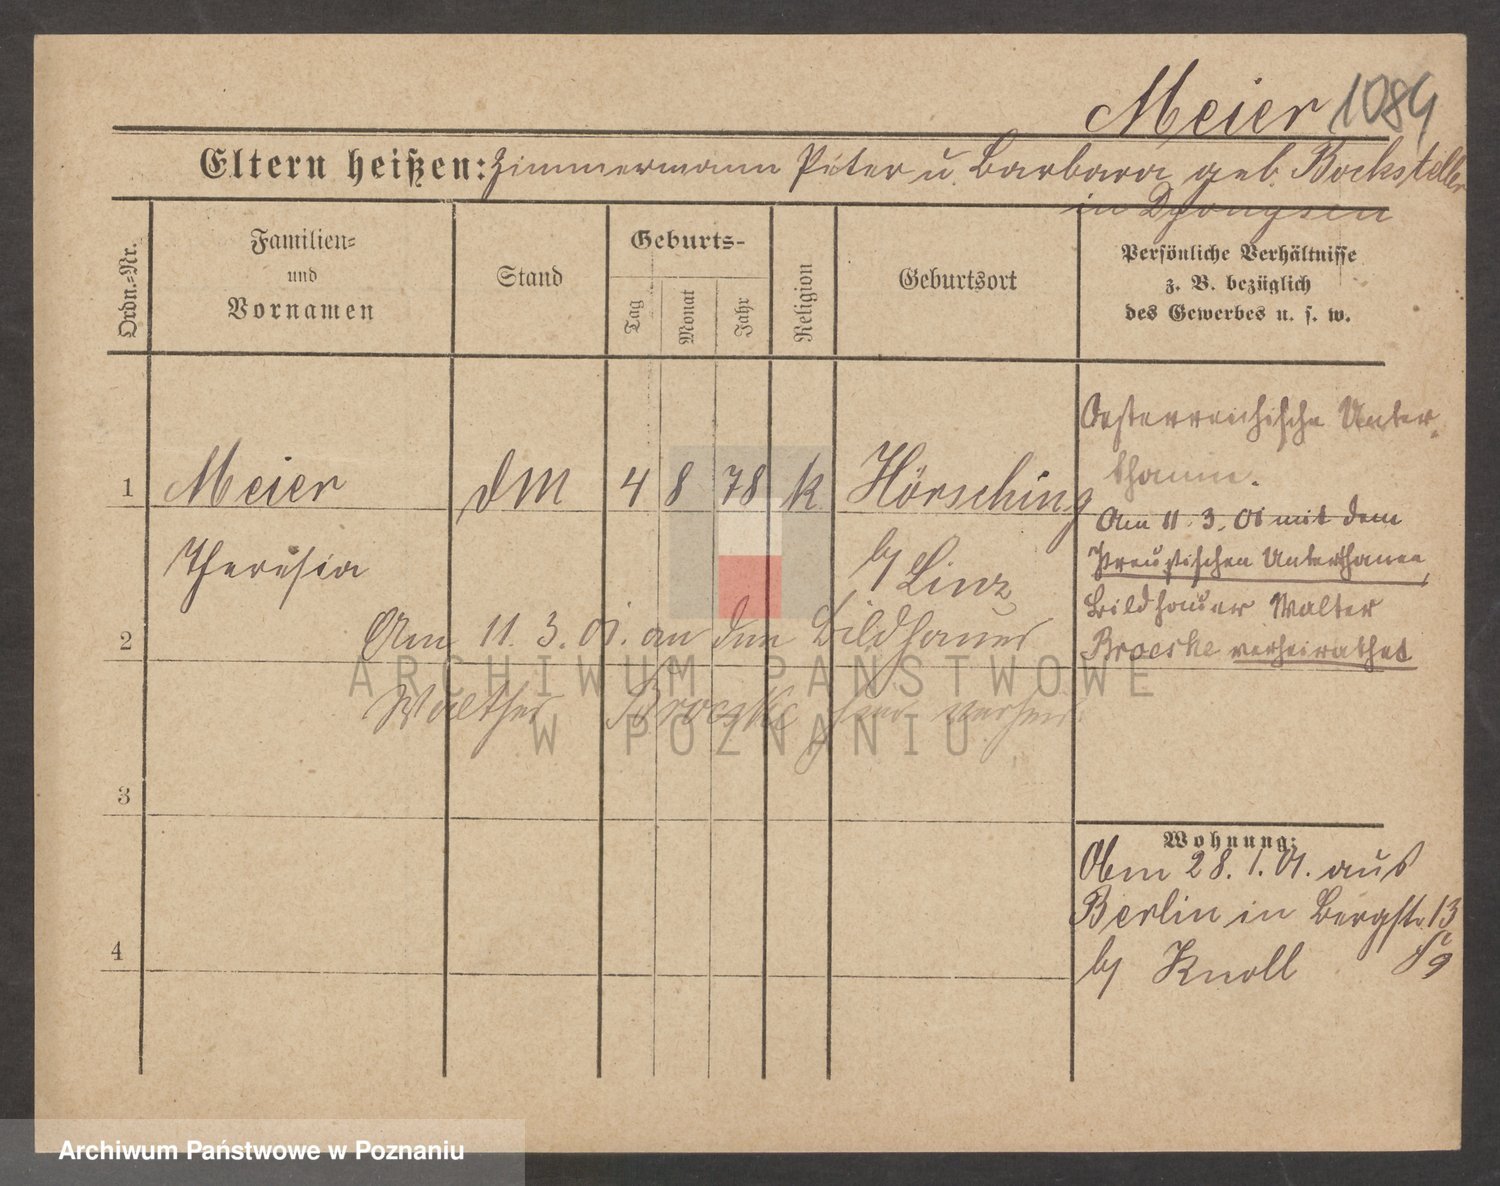 Meier 1084
Eltern heißen: Zimmermann Peter u. Barbara geb. Bocksteller
in
Ordn.-Nr.
Familien-
und
Vornamen
Stand
Geburts-
Tag
Monat
Jahr
Religion
Geburtsort
Persönliche Verhältnisse
z. B. bezüglich
des Gewerbes u. s. w.
Oesterreichische Unter-
thanin.
1 Meier DM 4 8 78 k Hörsching
Theresia b/ Linz
Am 11. 3. 01 mit dem
Preußischen Unterthanen,
Bildhauer Walter
Broeske verheirathet
2
Am 11. 3. 01. an den Bildhauer
Walther Broeske hier verheir.
3
4
Wohnung:
Am 28. 1. 01. aus
Berlin in Bergstr 13
b/ Knoll
ARCHIWUM PAŃSTWOWE
W POZNANIU
Archiwum Państwowe w Poznaniu